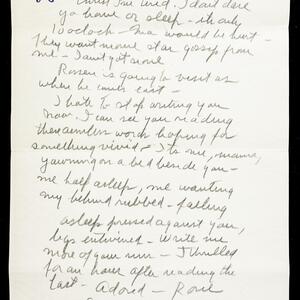 Christ I'm tired. I don't dare
go home or sleep - its only
1 o'clock - Ma would be hurt -
They want movie star gossip from
me - I ain't got none
is going to visit us
when he comes east -
I hate to stop writing you
now. I can see you reading
these aimless words hoping for
something vivid - Its me, mama,
yawning on a bed beside you -
me half asleep, me wanting
my behind rubbed - falling
asleep pressed against you,
legs entwined - Write me
more of your - I thrilled
for an hour after reading the
last - Adored -